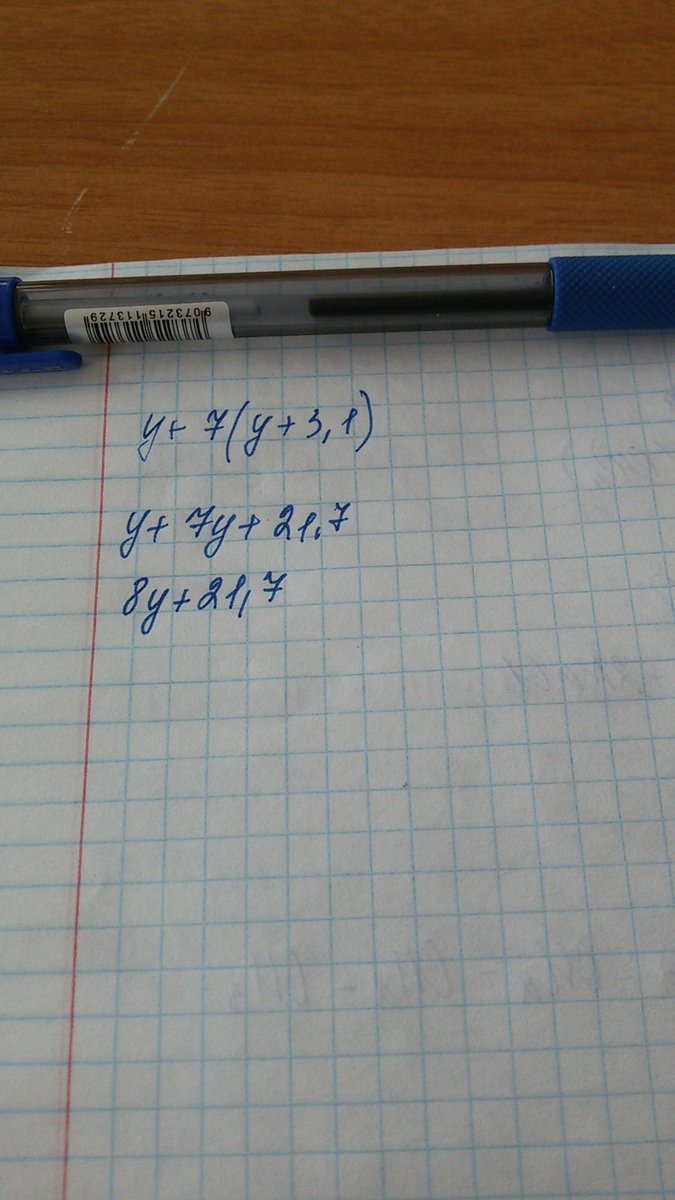 9073215113729
y+ 7(y+3,1)
y+ 7y+21,7
8y+21,7